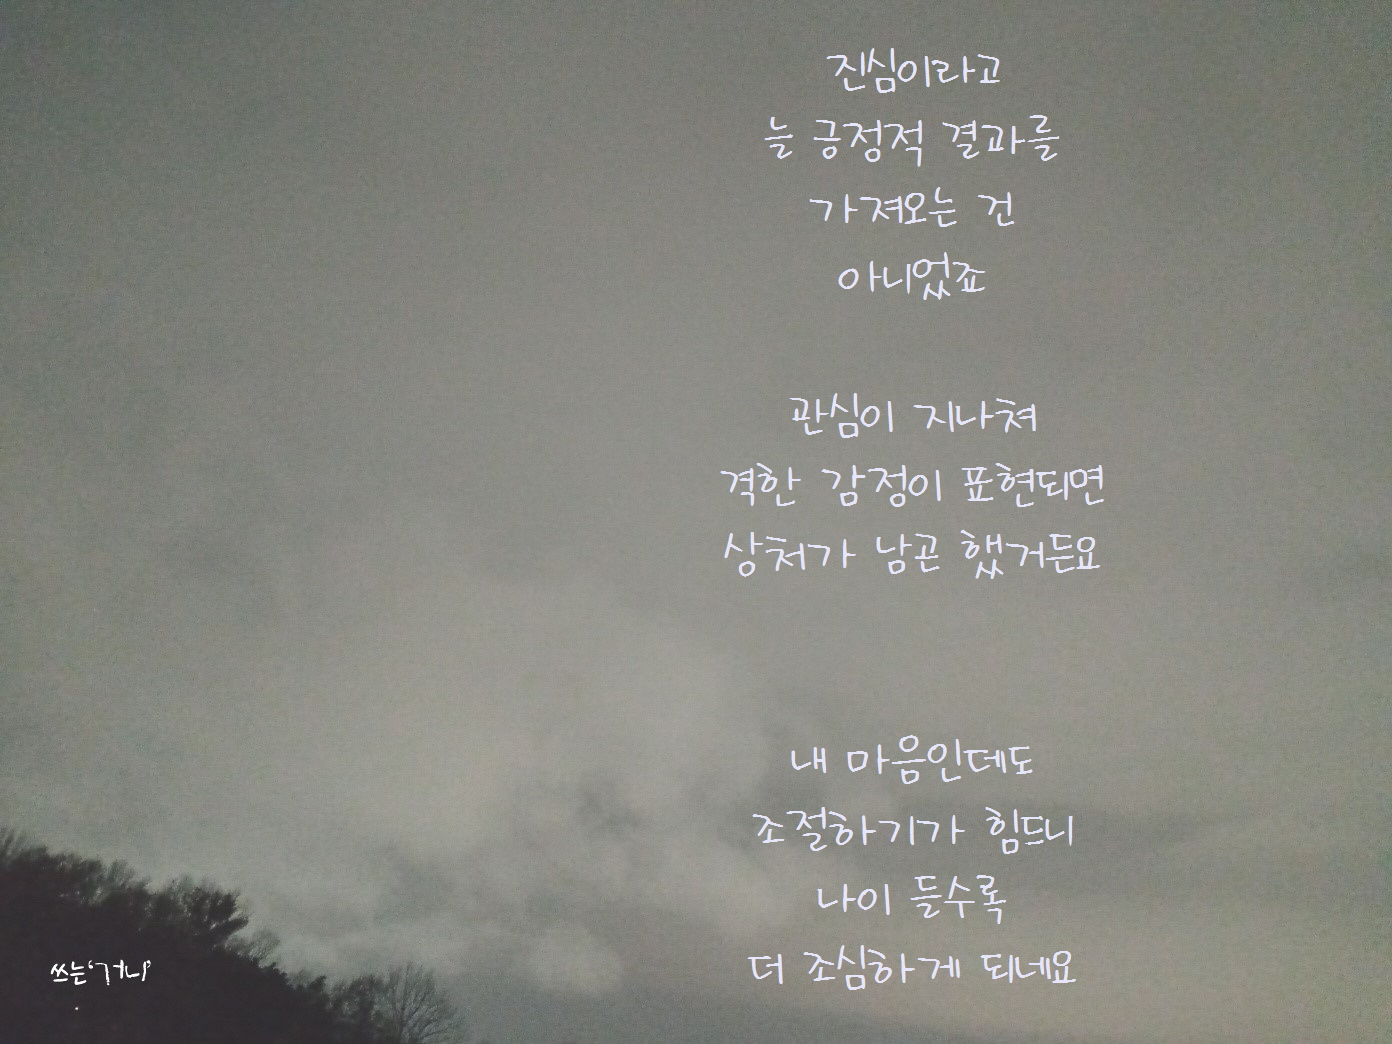 진심이라고
늘 긍정적 결과를
가져오는 건
아니었죠
관심이 지나쳐
격한 감정이 표현되면
상처가 남곤 했거든요
내 마음인데도
조절하기가 힘드니
나이 들수록
더 조심하게 되네요
쓰는‘거니’